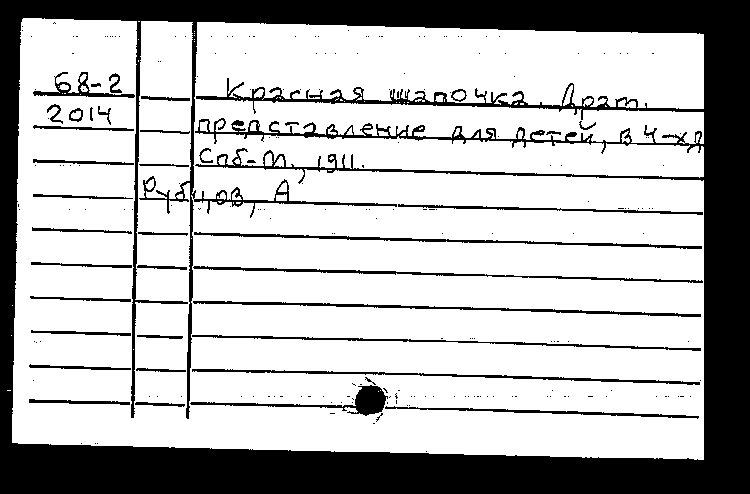 68-2
2014
Красная шапочка. Драт.
представление для детей, в 4-хд
Спб-М., 1911.
Рубцов, А